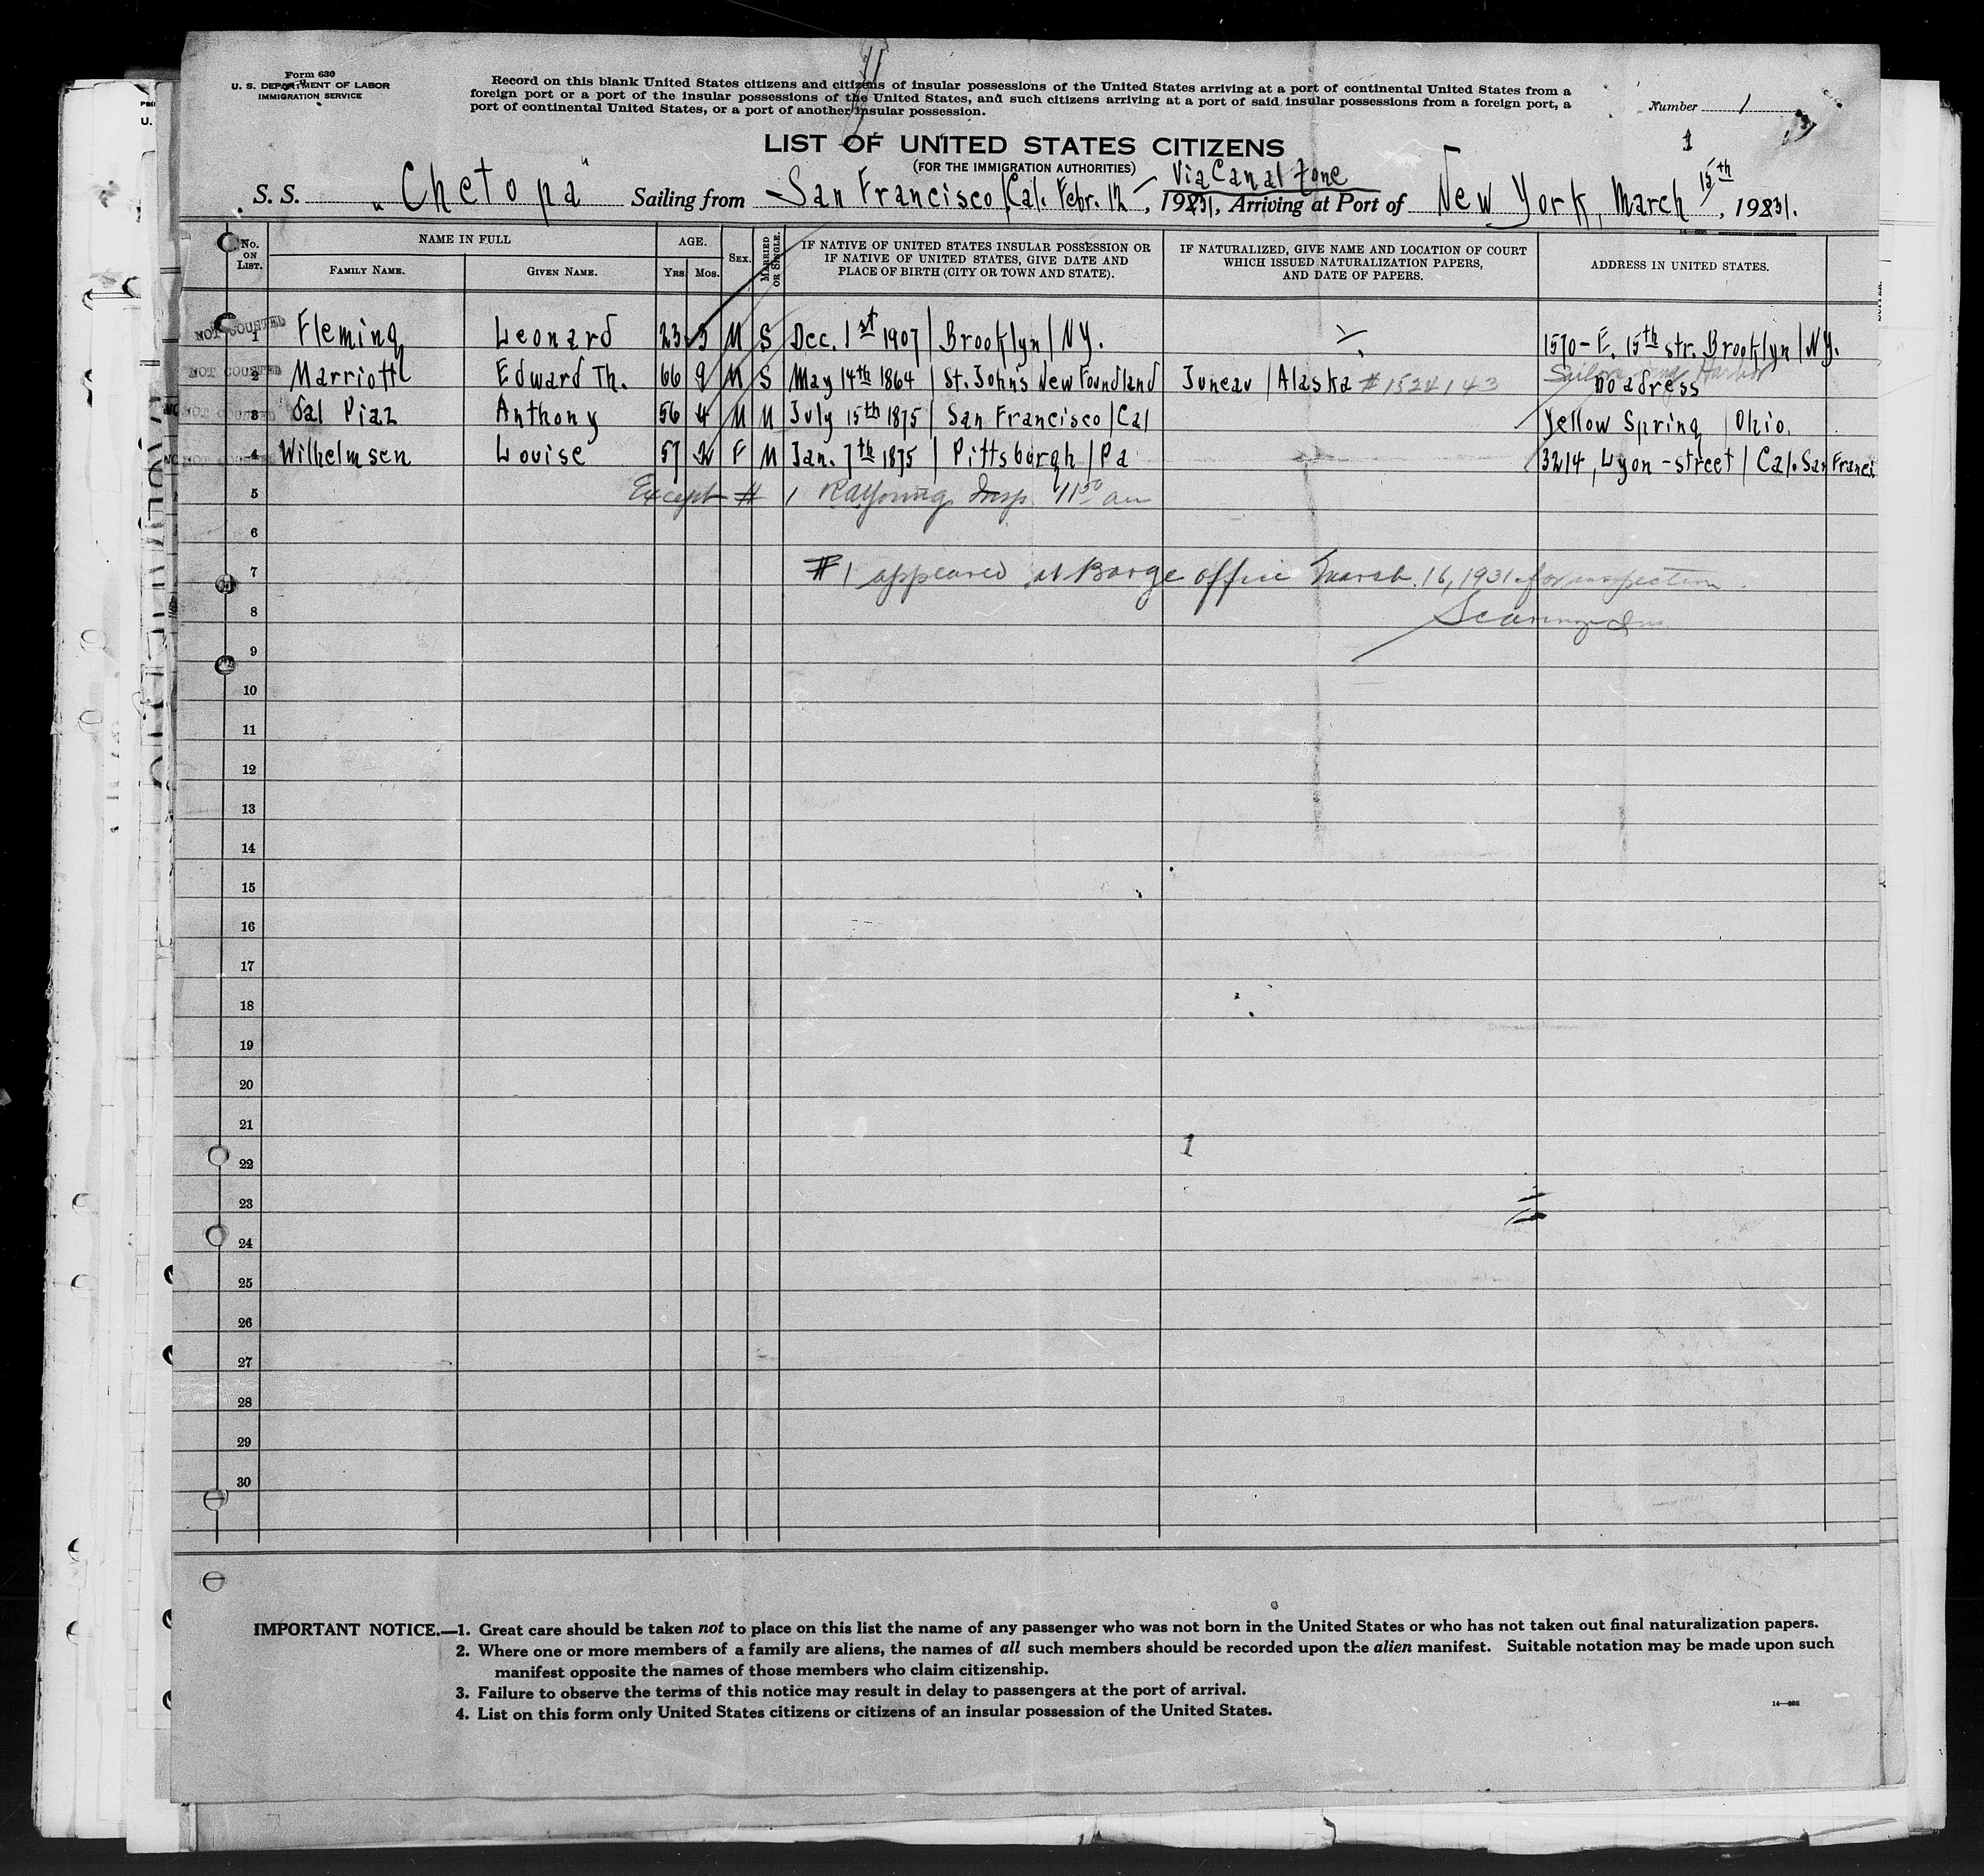 Form 630
U. S. DEPARTMENT OF LABOR
IMMIGRATION SERVICE
Record on this blank United States citizens and citizens of insular possessions of the United States arriving at a port of continental United States from a
foreign port or a port of the insular possessions of the United States, and such citizens arriving at a port of said insular possessions from a foreign port, a
port of continental United States, or a port of another insular possession.
Number 1
1
LIST OF UNITED STATES CITIZENS
(FOR THE IMMIGRATION AUTHORITIES)
Via Canal Zone
S. S. "Chetopa" Sailing from San Francisco/Cal. Febr. 12, 1931, Arriving at Port of New York, March 15th, 1931.
No. ON LIST. NAME IN FULL AGE. SEX. MARRIED OR SINGLE. IF NATIVE OF UNITED STATES INSULAR POSSESSION OR IF NATIVE OF UNITED STATES, GIVE DATE AND PLACE OF BIRTH (CITY OR TOWN AND STATE). IF NATURALIZED, GIVE NAME AND LOCATION OF COURT WHICH ISSUED NATURALIZATION PAPERS, AND DATE OF PAPERS. ADDRESS IN UNITED STATES.
FAMILY NAME. GIVEN NAME. YRS. MOS.
NOT COUNTED 1 Fleming Leonard 23 3 M S Dec. 1st 1907 | Brooklyn | NY. 1570 - E. 15th str. Brooklyn | NY.
NOT COUNTED 2 Marriott Edward Th. 66 9 M S May 14th 1864 | St. John's New Foundland Juneau | Alaska #1524143 no adress
NOT COUNTED 3 dal Piaz Anthony 56 4 M M July 15th 1875 | San Francisco | Cal Yellow Spring | Ohio.
NOT COUNTED 4 Wilhelmsen Louise 57 2 F M Jan. 7th 1875 | Pittsburgh | Pa 3214, Lyon-street | Cal. San Franci
5 Except # 1 Insp. 11 50 am
6
7 #1 appeared at Barge office March 16, 1931 for inspection
8
9
10
11
12
13
14
15
16
17
18
19
20
21
1
22
23
24
25
26
27
28
29
30
IMPORTANT NOTICE.—1. Great care should be taken not to place on this list the name of any passenger who was not born in the United States or who has not taken out final naturalization papers.
2. Where one or more members of a family are aliens, the names of all such members should be recorded upon the alien manifest. Suitable notation may be made upon such
manifest opposite the names of those members who claim citizenship.
3. Failure to observe the terms of this notice may result in delay to passengers at the port of arrival.
4. List on this form only United States citizens or citizens of an insular possession of the United States.